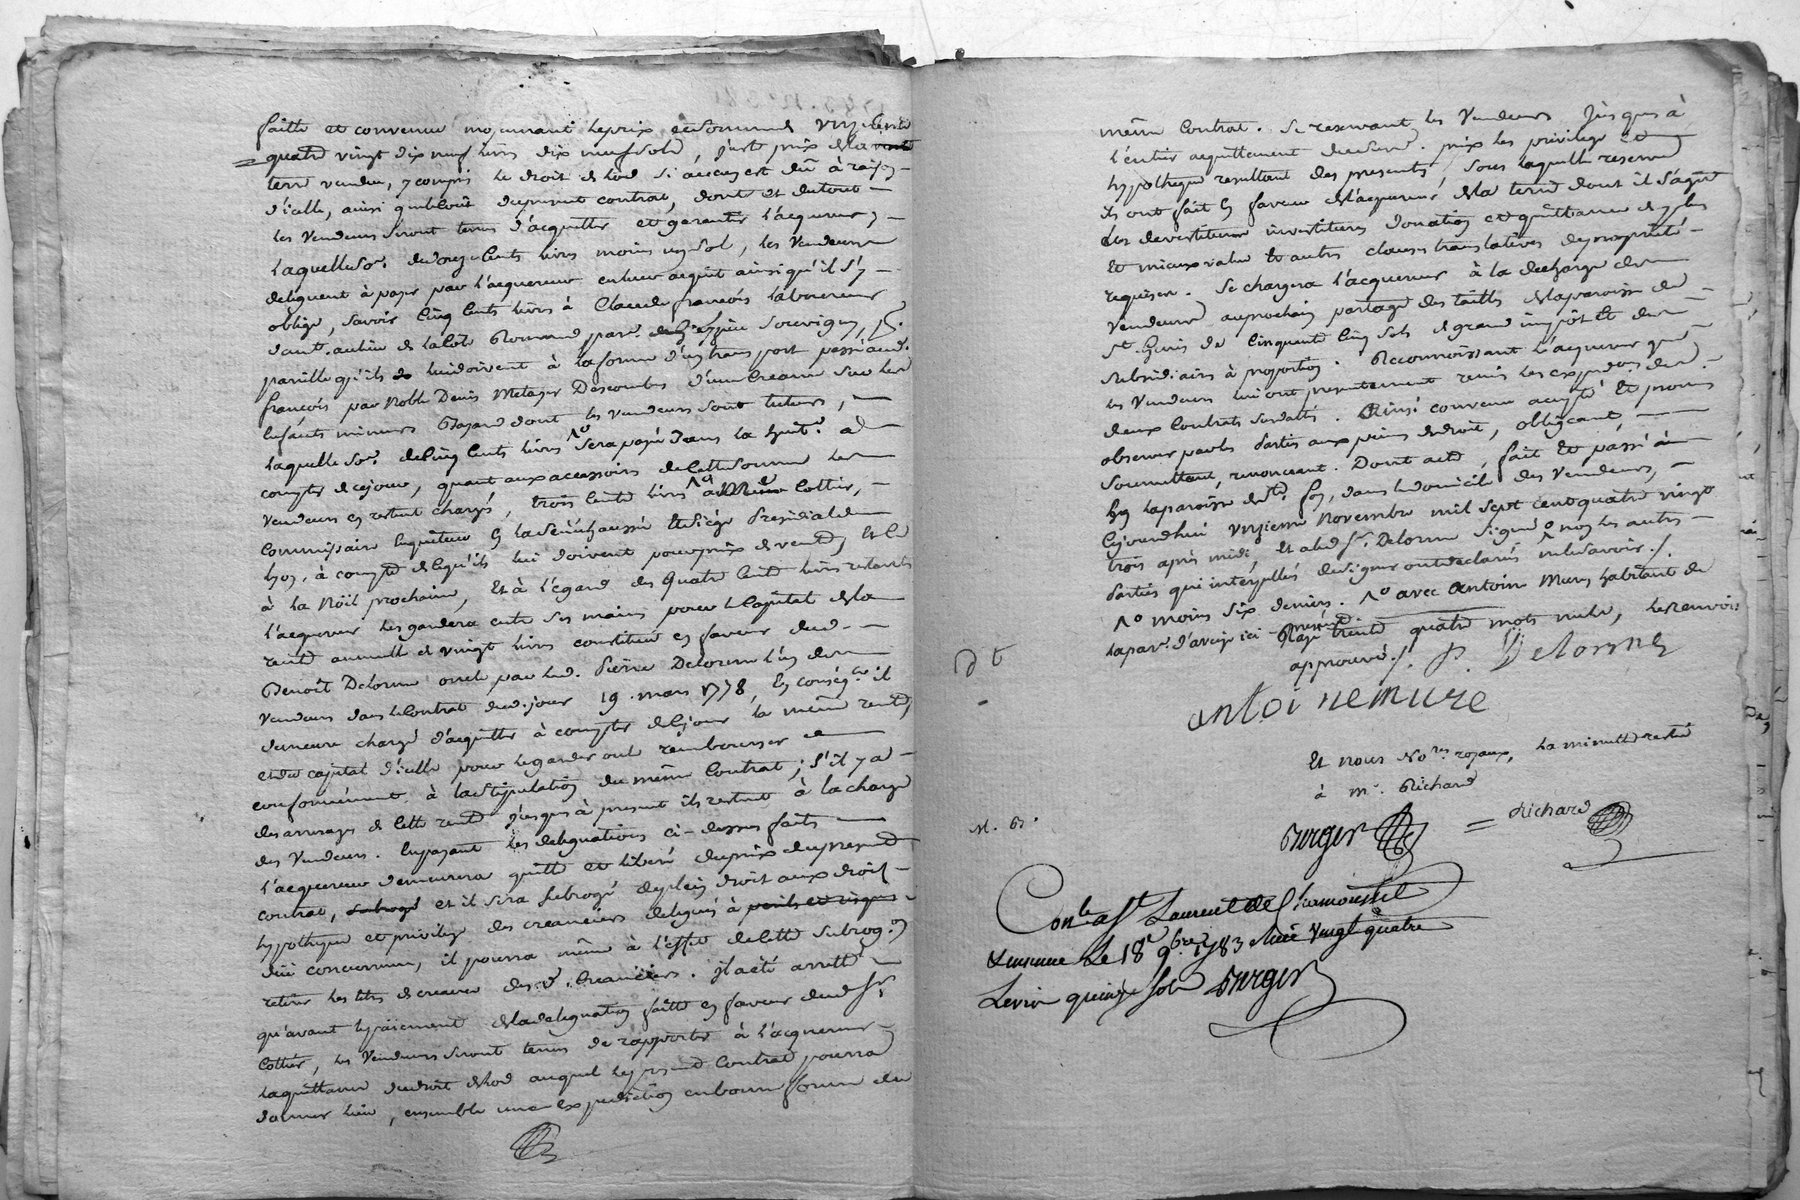 faitte et convenue moyennant le prix et somme d'unze cents
quatre vingt dix neuf livres dix neuf sols, juste prix de la vente
terre vendue, y compris le droit de lod si aucun est dû à raison
d'icelle, ainsi que le coût du present contrat, dont et du tout
les Vendeurs seront tenus d'acquitter et garantir l'acquereur,
laquelle so.e de douze cents livres moins un sol, les Vendeurs
deleguent à payer par l'acquereur en leur acquit ainsi qu'il s'y
oblige, savoir Cinq cents livres à Claude françois laboureur
parreille qu'ils lui doivent à la forme d'un transport passé aud.
françois par Noble Denis Metayer Descombes d'une Creance sur les
Enfants mineurs dont les vendeurs sont tuteurs,
laquelle so.e de Cinq Cents livres sera payé dans la huit.e à
compter de ce jour, quant aux accessoires de cette somme les
Vendeurs en restent chargés, trois Cents livres à Cottier,
Commissaire Enquêteur en la Sénéchaussée et siège Presidial de
Lyon, à compte de ce qu'ils lui doivent pour prix de vente, et ce
à la Nöel prochaine, Et à l'égard des quatre Cents livres restants
l'acquereur les gardera entre ses mains pour le Capital de la
rente annuelle de vingt livres constituée en faveur dud.
Benoît Delorme oncle par led. Pierre Delorme l'un des
Vendeurs dans le Contrat dud. jour 19. mars 1778, En conség.ce il
demeure chargé d'acquitter à compter de ce jour la même rente,
et du capital d'icelle pour le garder ou le rembourser
conformément à la stipulation du même Contrat; s'il y a
des arrerages de cette rente jusques à present ils restent à la charge
des Vendeurs. En payant les delegations ci-dessus faites
l'acquereur demeurera quitte et liberé du prix du present
contrat, subrogé et il sera subrogé de plein droit aux droits
hypotheque et privilege des creanciers delegués à perils et risques
qui concernent, il pourra même à l'effet de cette subrog.on
retirer les titres de creance des d. Creanciers. Il a été arretté
qu'avant le paiement de la delegation faitte en faveur dud. s.r
Cottier, les Vendeurs seront tenus de rapporter à l'acquereur
la quittance du droit de lod auquel le present Contrat pourra
donner lieu, ensemble une expedition en bonne forme du
même Contrat. Se reservant les Vendeurs jusques à
l'entier acquittement du susd. prix les privilege et
hypotheque resultant des presentes, sous laquelle reserve
ils ont fait en faveur de l'acquereur de la terre dont il s'agit
les devestitures investitures donation et quittance de plus
et mieux value et autres clauses translatives de proprieté
requises. Se chargera l'acquereur à la decharge des
Vendeurs au prochain partage des tailles de la paroisse de
de Cinquante Cinq sols de grand impôt et des
subsidiaires à proportion. Reconnoissant l'acquereur que
les Vendeurs lui ont presentement remis les expedi.ons des
deux Contrats susdattés. Ainsi convenu accepté et promis
observer par les Parties aux peines de droit, obligeant
soumettant, renonceant. Dont acte, fait et passé
en la paroisse de St. foy, dans le domicile des Vendeurs,
Cejourdhui unzieme Novembre mil sept cent quatre vingt
trois après midi, Et a led. s.r Delorme signé non les autres
Parties qui interpellés de signer ont declarés ne le savoir./.
moins six deniers. avec antoine Mure habitant de
la par.e d'aveize ici present.
Rayé trente quatre mots nuls, les renvois
approuvés./. P. Delorme
antoinemure
Et nous No.res royaux, la minutte restée
à M.e Richard
Burger = Richard
M. B.
Con.le a St Laurent de Chamousset
Le 18e 9bre 1783 Reçu vingt quatre
Livre quinze sols Burger